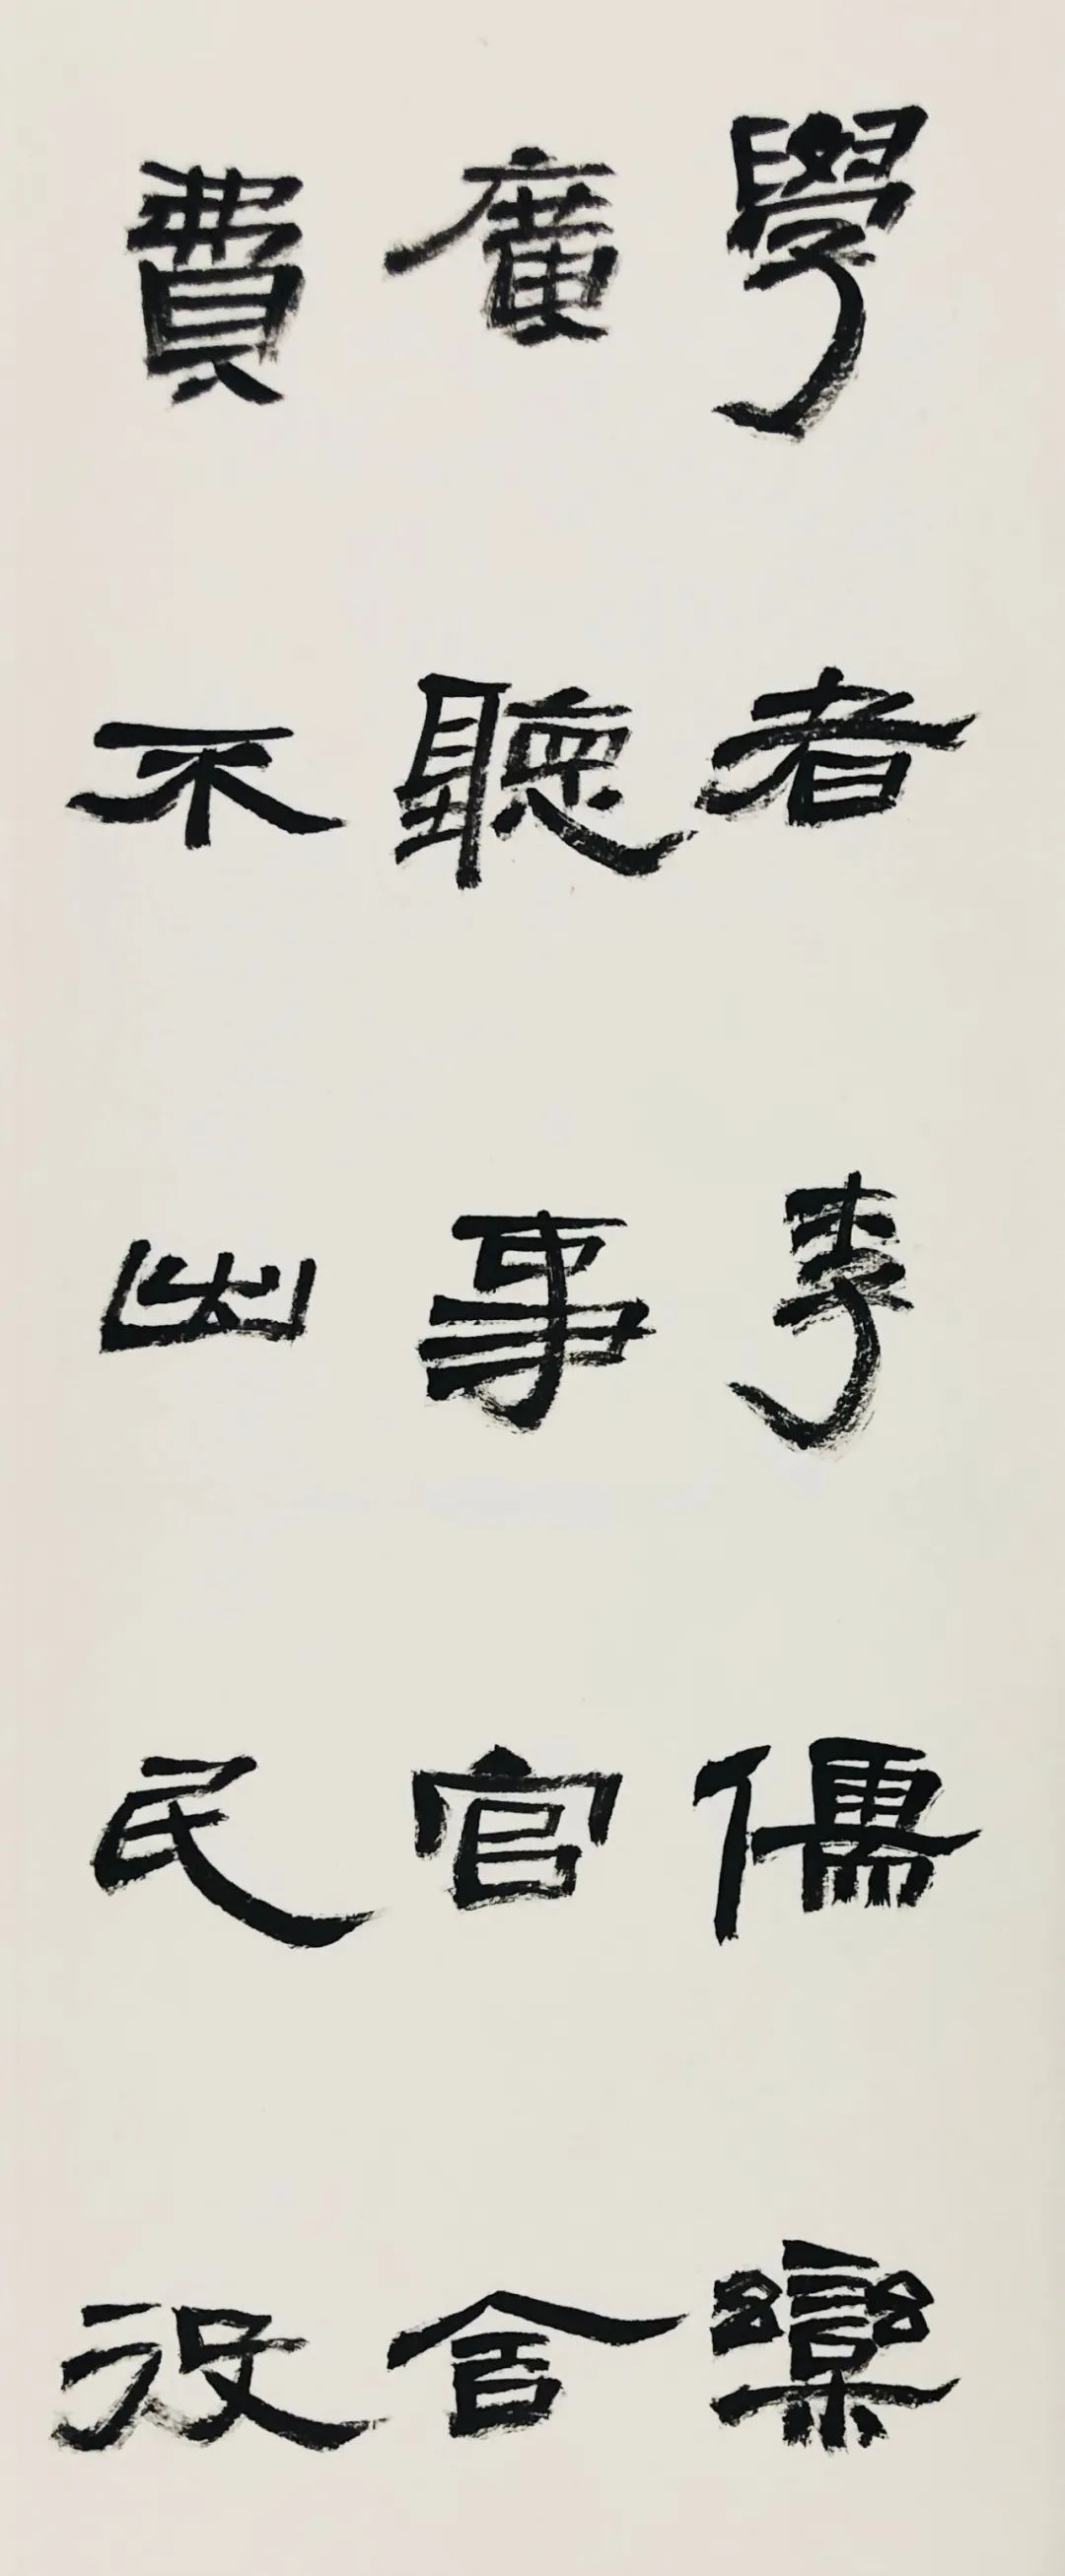 學者李儒欒
廣聽事官舍
費不出民役